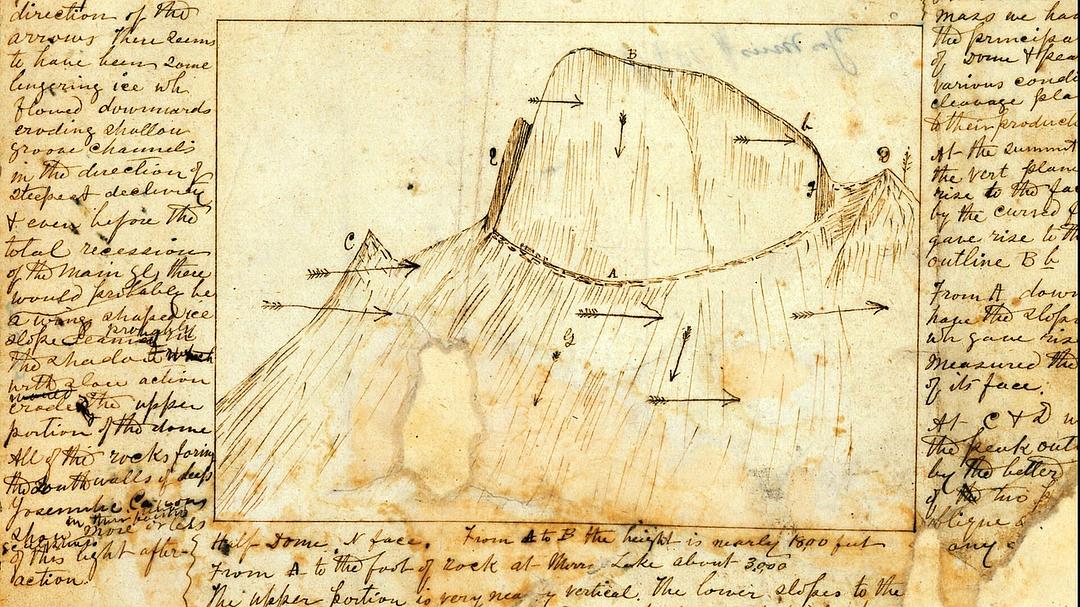 direction of the
arrows There seems
to have been some
lingering ice wh
flowed downwards
eroding shallow
groove channels
in the direction of
steepest declivity
& even before the
total recession
of the main gl there
would probably be
a wang shaped ice
slope
probably
the shadow
with slow action
would
erode the upper
portion of the dome
All of the rocks forming
the South walls of deep
Yosemite Canyons
in this portion
show more or less
of this light after-
action.
B
b
e
g
D
C
A
G
Half-Dome. N face. From A to B the height is nearly 1800 feet
From A to the foot of rock at Mirror Lake about 3,000
The upper portion is very nea y vertical. The lower slopes to the
mass we ha
the principa
of Dome & pea
various condi
cleavage pla
to their product
At the summit
the vert plane
rise to the fa
by the curved f
gave rise to th
outline B b
From A down
have the slope
wh gave rise
measured the
of its face.
At C & D w
the peak out
by the better
of the two
oblique
any